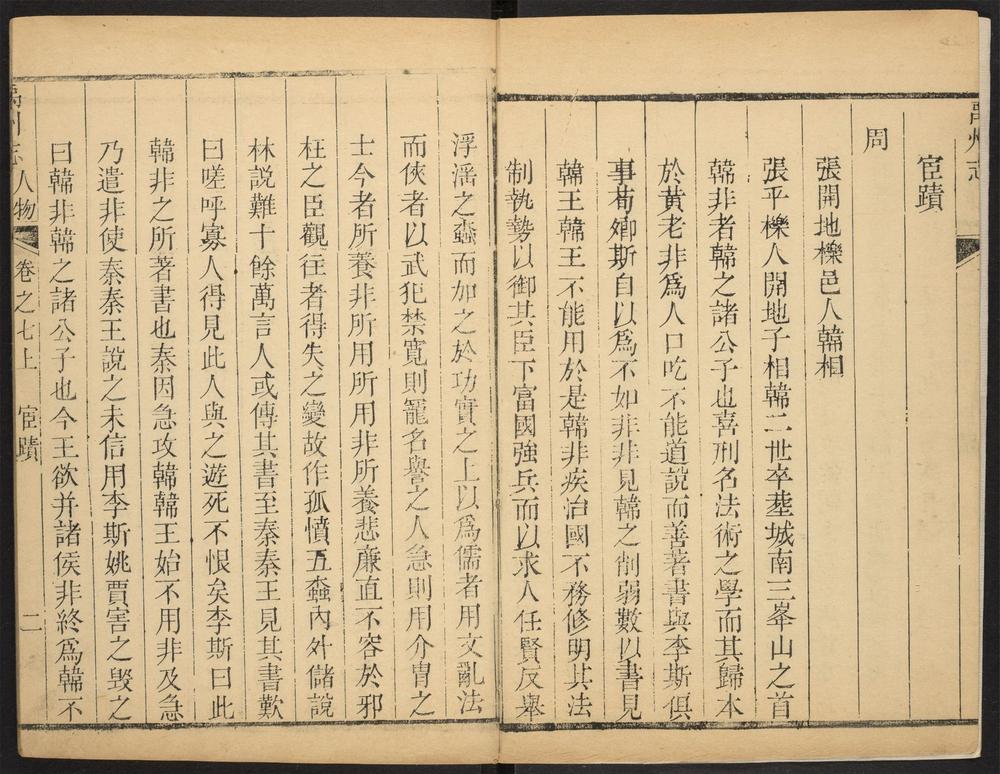 禹州志
宦蹟
周
張開地櫟邑人韓相
張平櫟人開地子相韓二世卒塟城南三峯山之首
韓非者韓之諸公子也喜刑名法術之學而其歸本
於黃老非爲人口吃不能道說而善著書與李斯俱
事荀卿斯自以爲不如非非見韓之削弱數以書見
韓王韓王不能用於是韓非疾治國不務修明其法
制執勢以御其臣下富國強兵而以求人任賢反舉
浮滛之蠧而加之於功實之上以爲儒者用文亂法
而俠者以武犯禁寬則寵名譽之人急則用介胄之
士今者所養非所用所用非所養悲廉直不容於邪
枉之臣觀往者得失之變故作孤憤五蠧內外儲說
林說難十餘萬言人或傳其書至秦秦王見其書歎
曰嗟呼寡人得見此人與之遊死不恨矣李斯曰此
韓非之所著書也秦因急攻韓韓王始不用非及急
乃遣非使秦秦王說之未信用李斯姚賈害之毁之
曰韓非韓之諸公子也今王欲并諸侯非終爲韓不
禹州志人物 卷之七上 宦蹟 二